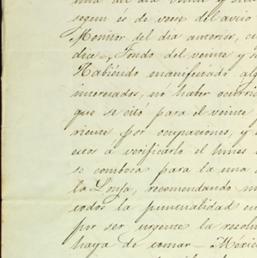 una del dia veinte y
segun es de verse del aviso
Monitor del dia anterior,
dia, Fondo del veinte y
Habiendo manifestado
interesados, no haber
que se citó para el veinte
riente por ocupaciones, y
estos a verificarlo el lunes
se combora para la una
la Lonja, recomendando
todos la puntualidad
por ser urgente la resolu
haya de tomar – México